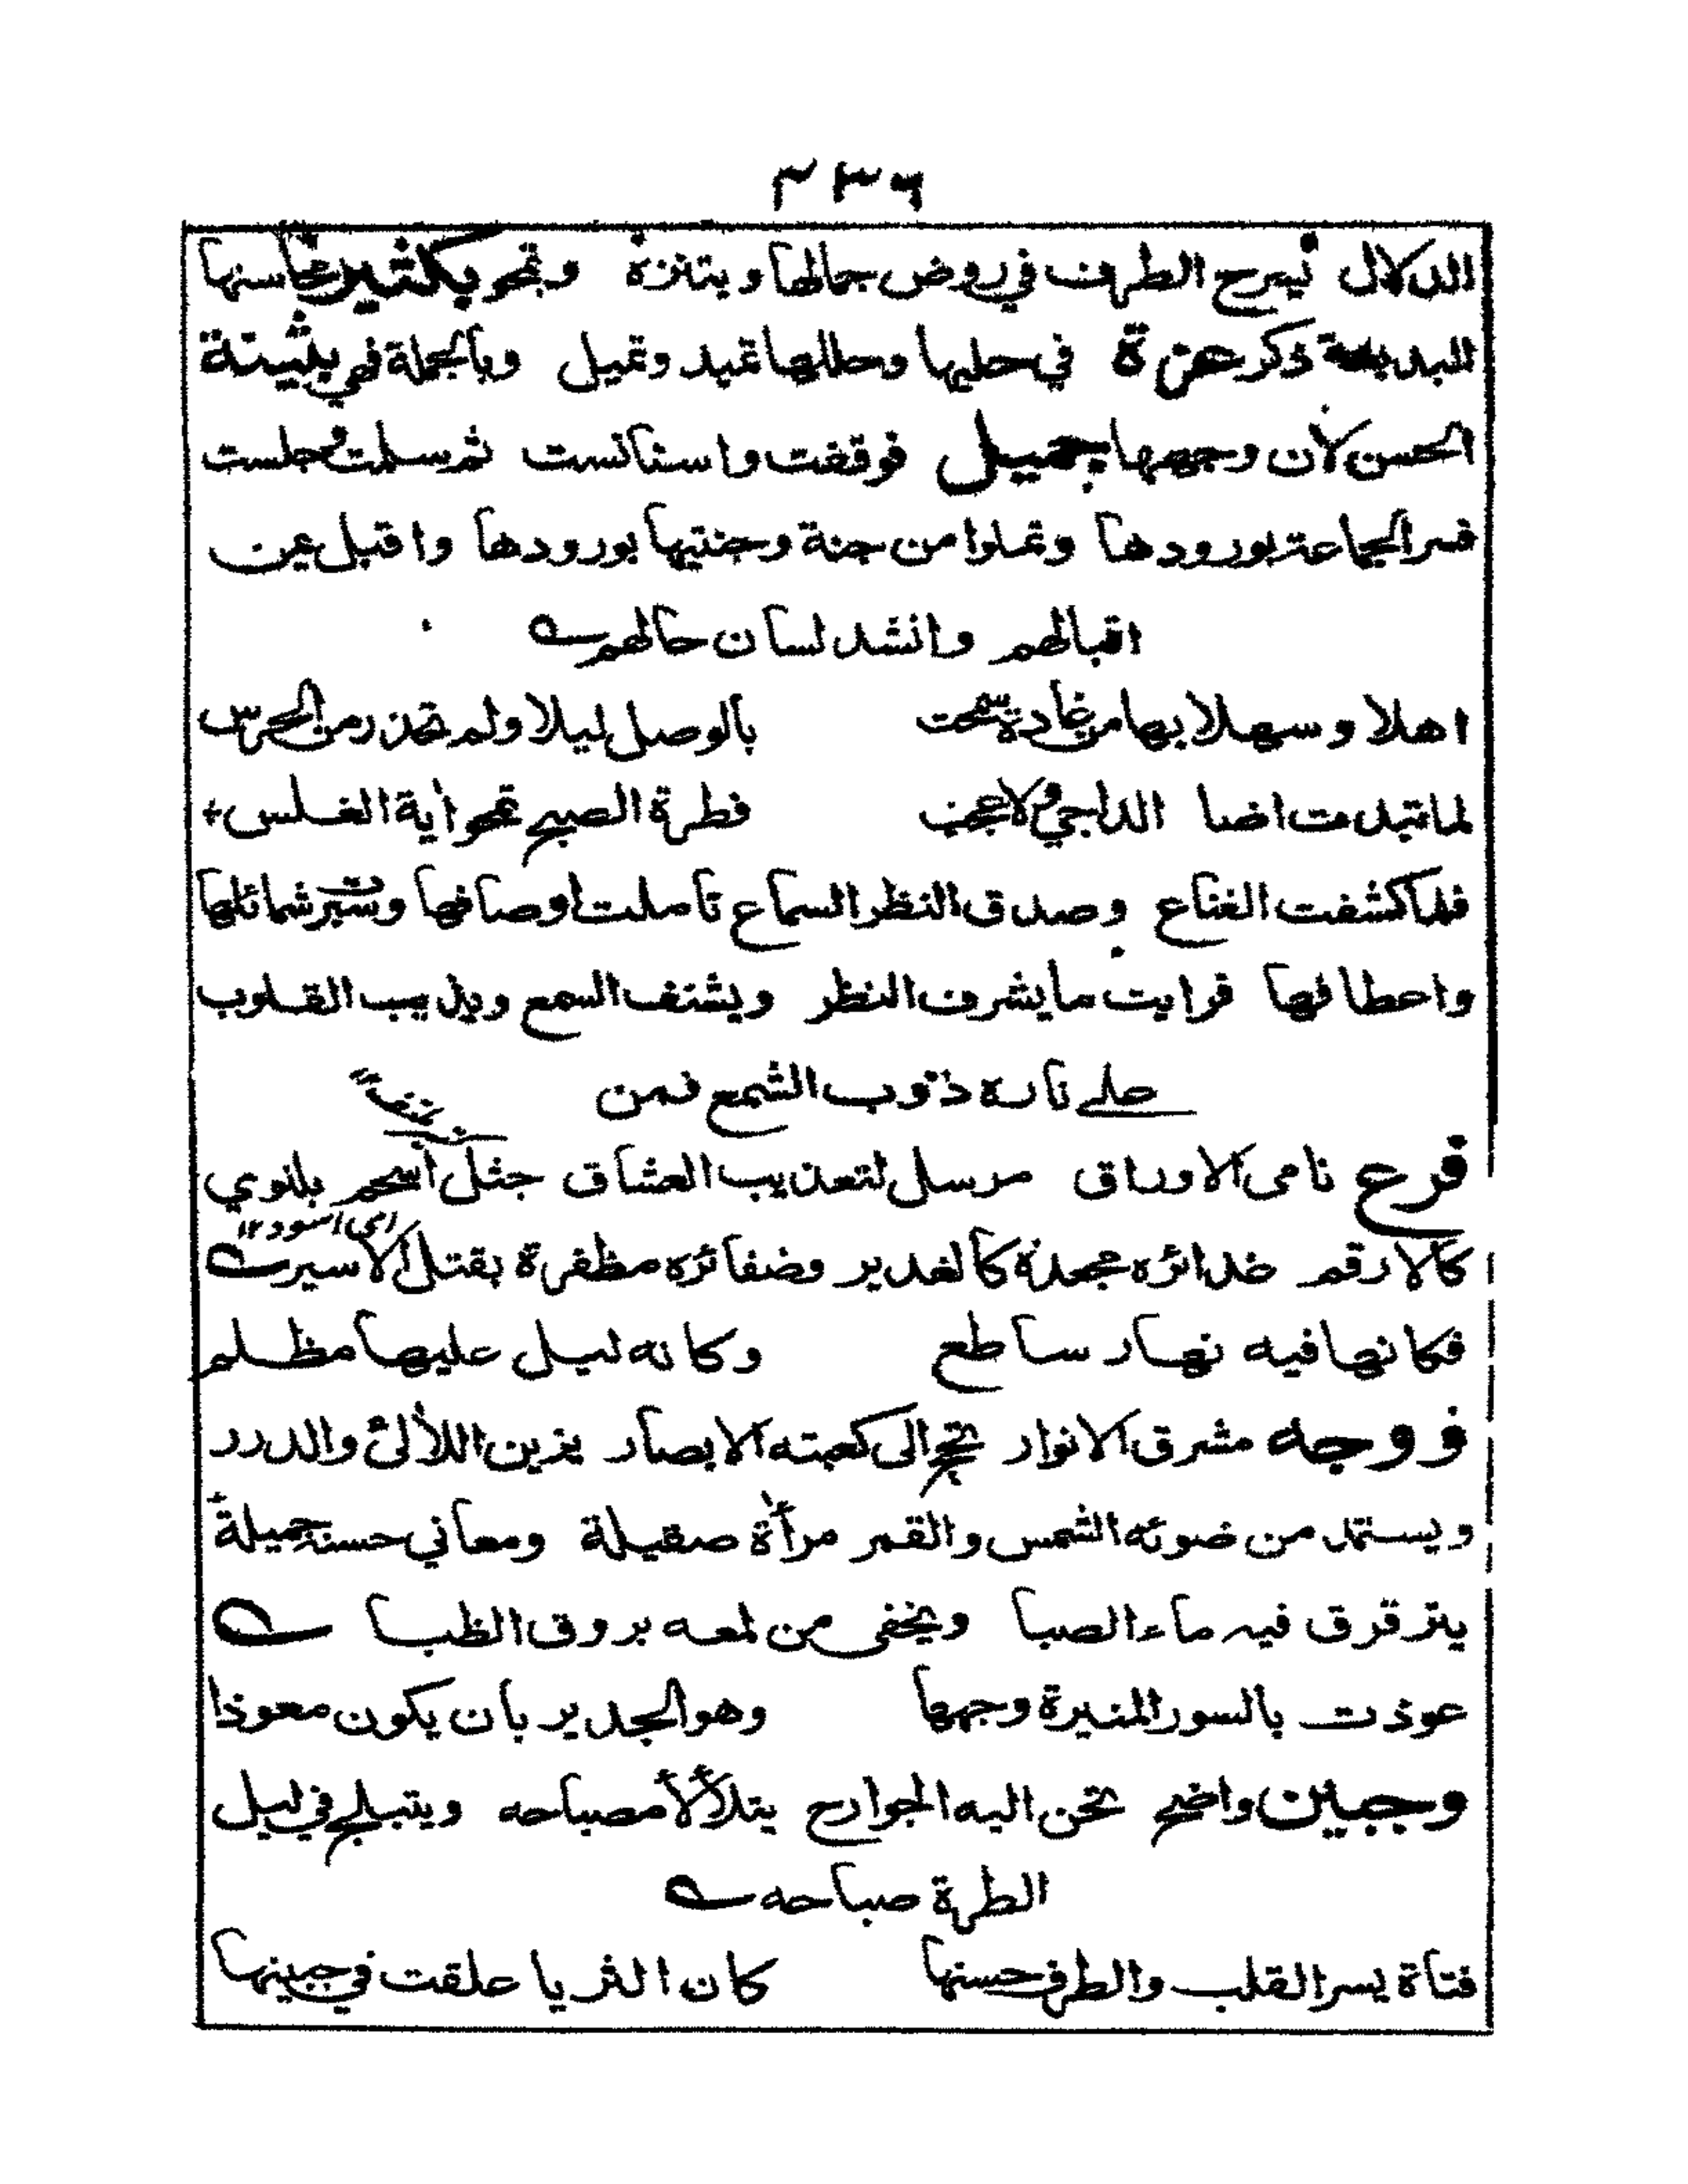 ٣٣٦
الدلال يسرح الطرف في روض جمالها ويتنزه وتمحو بكثير محاسنها
البديعة ذكر عزة في حليها وحللها تميد وتميل وبالجملة فهي بثينة
الحسن لأن وجهها جميل فوقفت واستانست ثم سلمت وجلست
فسر الجماعة بورودها وتملوا من جنة وجنتيها بورودها واقبل عن
اقبالهم وانشد لسان حالهم
اهلا وسهلا بها من غادة سمحت بالوصل ليلا ولم تحذر من الحرس
لما تبدت اضا الداجي ولا عجب فطرة الصبح تمحو أية الغلس
فلما كشفت القناع وصدق النظر السماع تاملت اوصافها وسبرت شمائلها
واعطافها فرايت ما يشرف النظر ويشنف السمع ويذيب القلوب
على ناره ذوب الشمع فمن
فرع نامى الاوراق مرسل لتعذيب العشاق جثل أسحم يلتوي
اى اسود ١٢
كالارقم غدائره مجعدة كالغدير وضفائره مظفرة بقتل الاسير
فكانها فيه نهار ساطع وكانه ليل عليها مظلم
ووجه مشرق الانوار تحج الى كعبته الابصار يزين اللألئ والدرر
ويستمد من ضوئه الشمس والقمر مرأة صقيلة ومعاني حسنة جميلة
يترقرق فيه ماء الصبا ويخفى من لمعه بروق الظبا
عوذت بالسور المنيرة وجهها وهو الجدير بان يكون معوذا
وجبين واضح تحن اليه الجوارح يتلألأ مصباحه ويتبلج في ليل
الطرة صباحه
فتاة يسر القلب والطرف حسنها كان الثريا علقت في جبينها